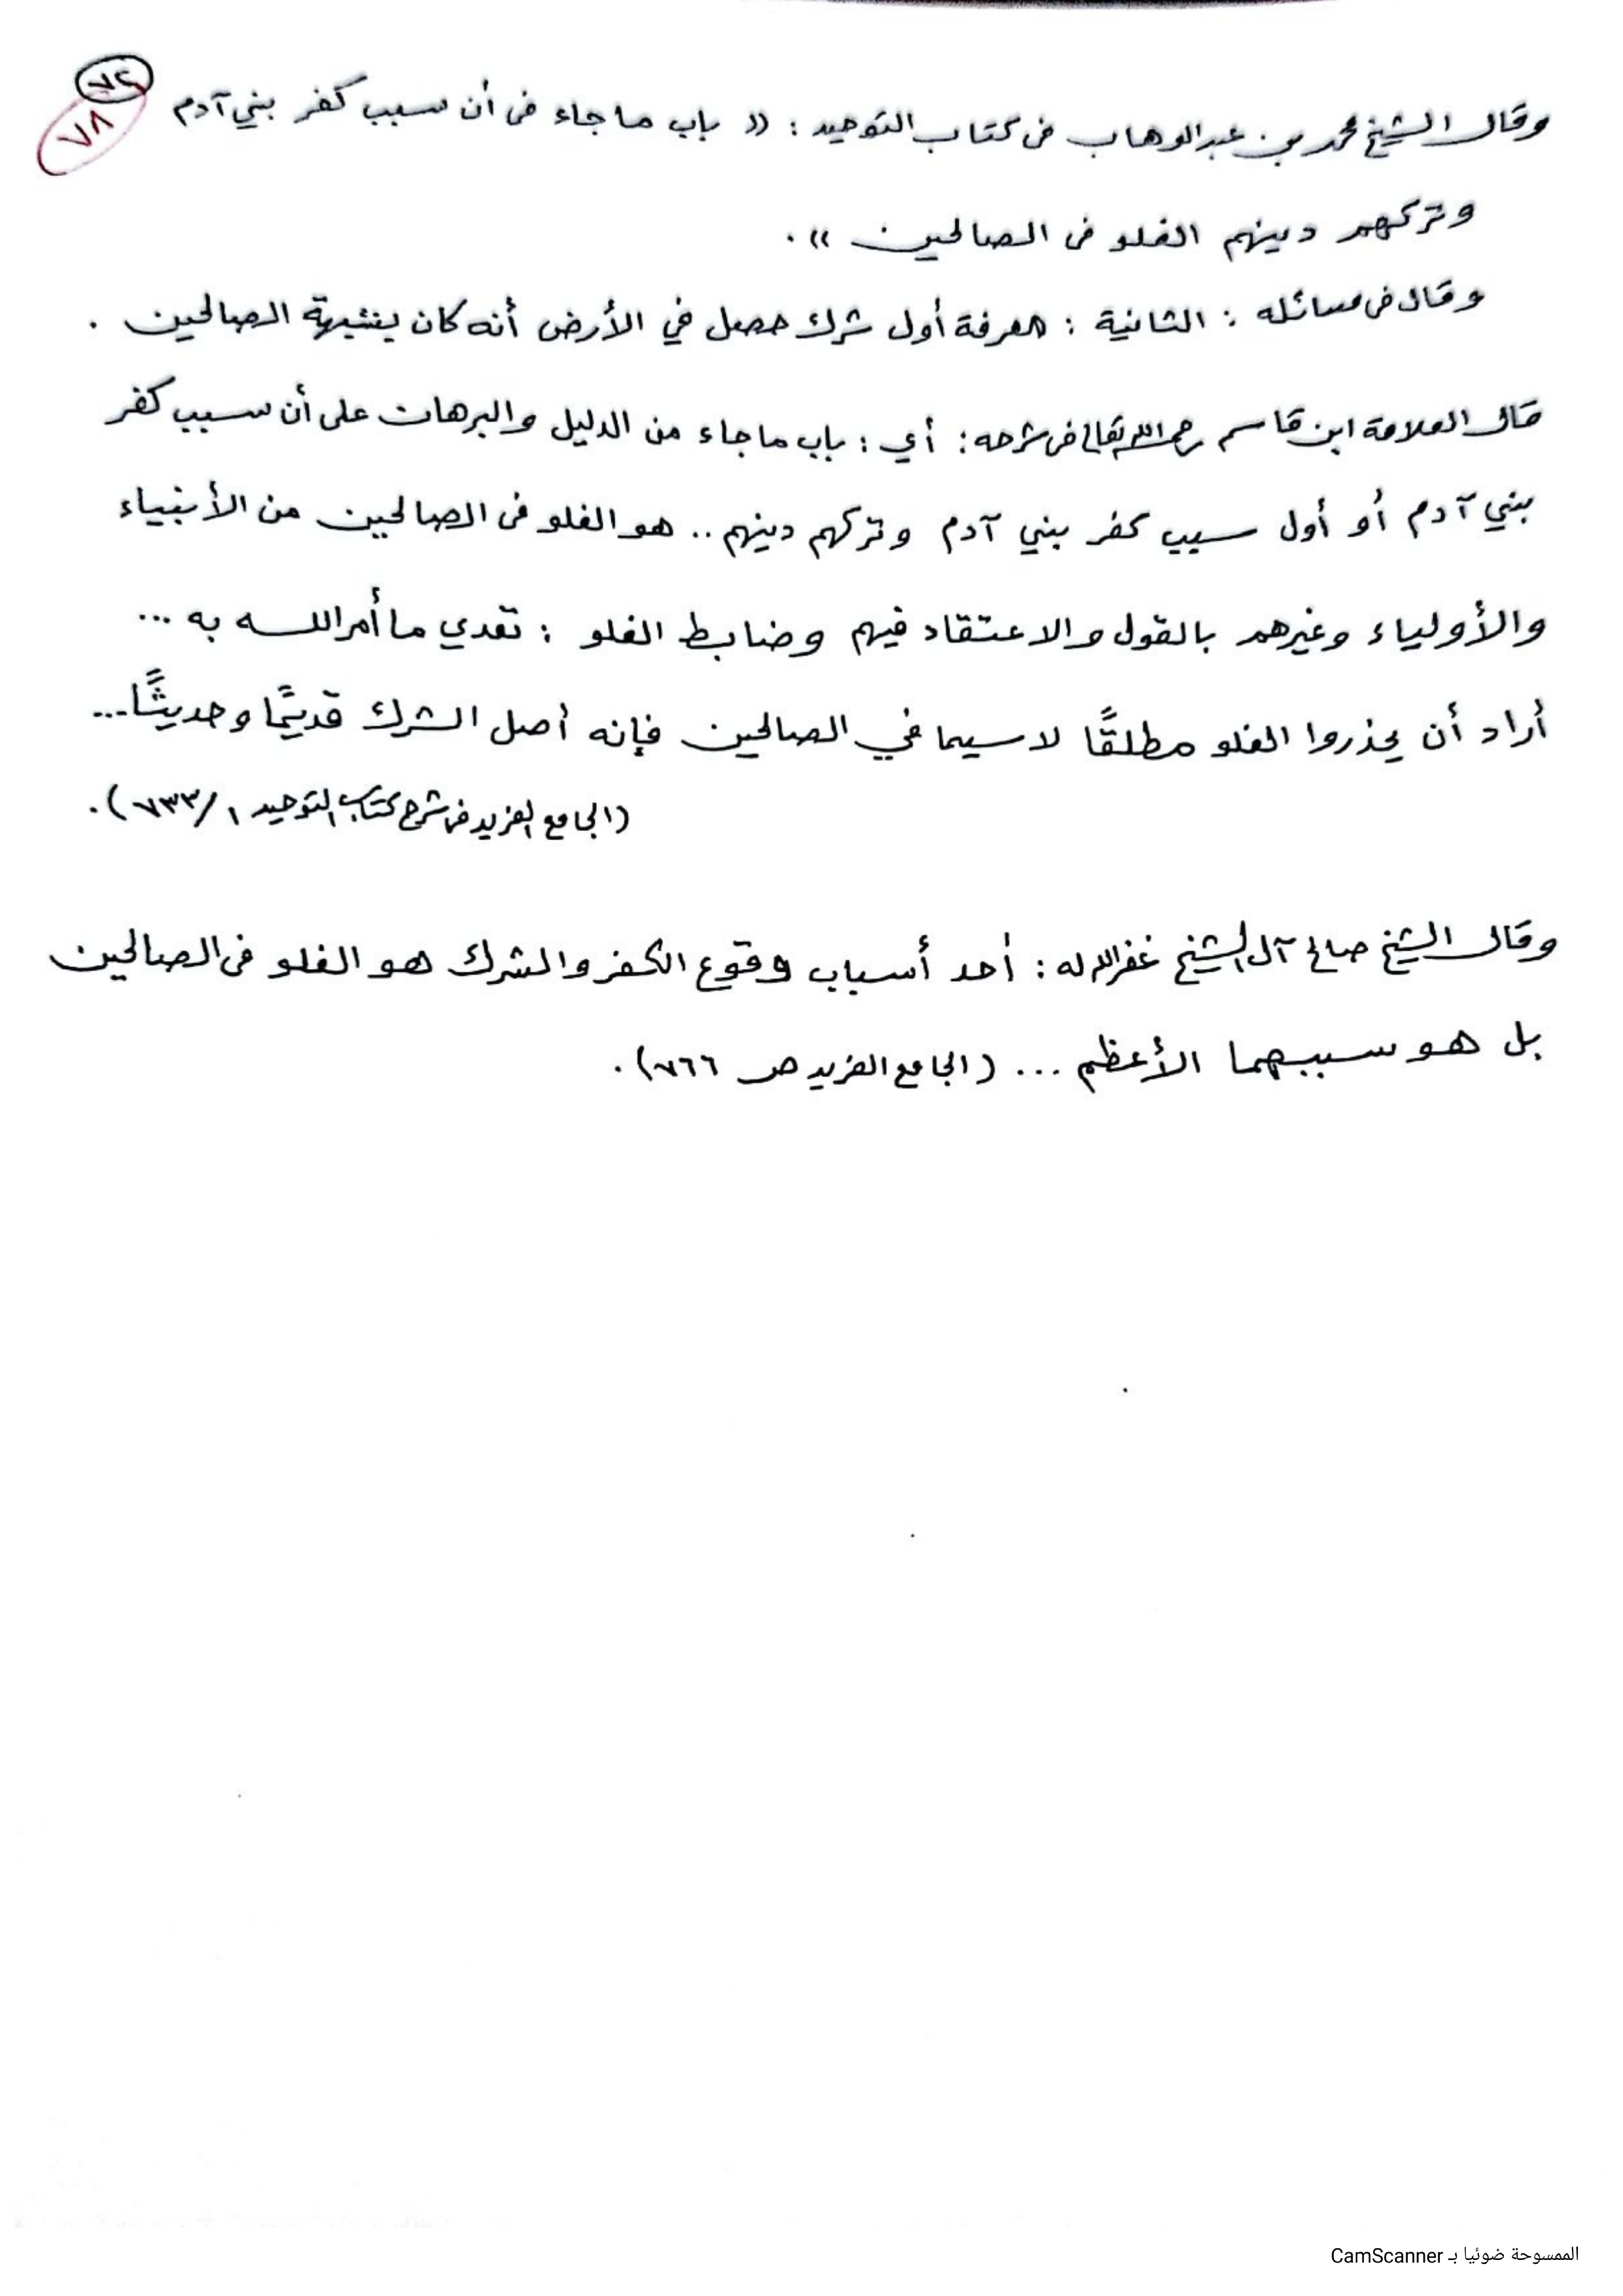 ٧٢
٧٨
وقال الشيخ محمد بن عبدالوهاب فى كتاب التوحيد : (( باب ما جاء فى أن سبب كفر بني آدم
وتركهم دينهم الغلو فى الصالحين )) .
وقال فى مسائله : الثانية : معرفة أول شرك حصل في الأرض أنه كان بشبهة الصالحين .
قال العلامة ابن قاسم رحمه الله تعالى فى شرحه : أي : باب ما جاء من الدليل والبرهان على أن سبب كفر
بني آدم أو أول سبب كفر بني آدم وتركهم دينهم .. هو الغلو فى الصالحين من الأنبياء
والأولياء وغيرهم بالقول والاعتقاد فيهم وضابط الغلو : تعدي ما أمر الله به ...
أراد أن يحذروا الغلو مطلقًا لا سيما في الصالحين فإنه أصل الشرك قديمًا وحديثًا ...
(الجامع الفريد فى شرح كتاب التوحيد ١/٧٣٣) .
وقال الشيخ صالح آل الشيخ غفر الله له : أحد أسباب وقوع الكفر والشرك هو الغلو فى الصالحين
بل هو سببهما الأعظم ... (الجامع الفريد ص ٧٦٦) .
الممسوحة ضوئيا بـ CamScanner